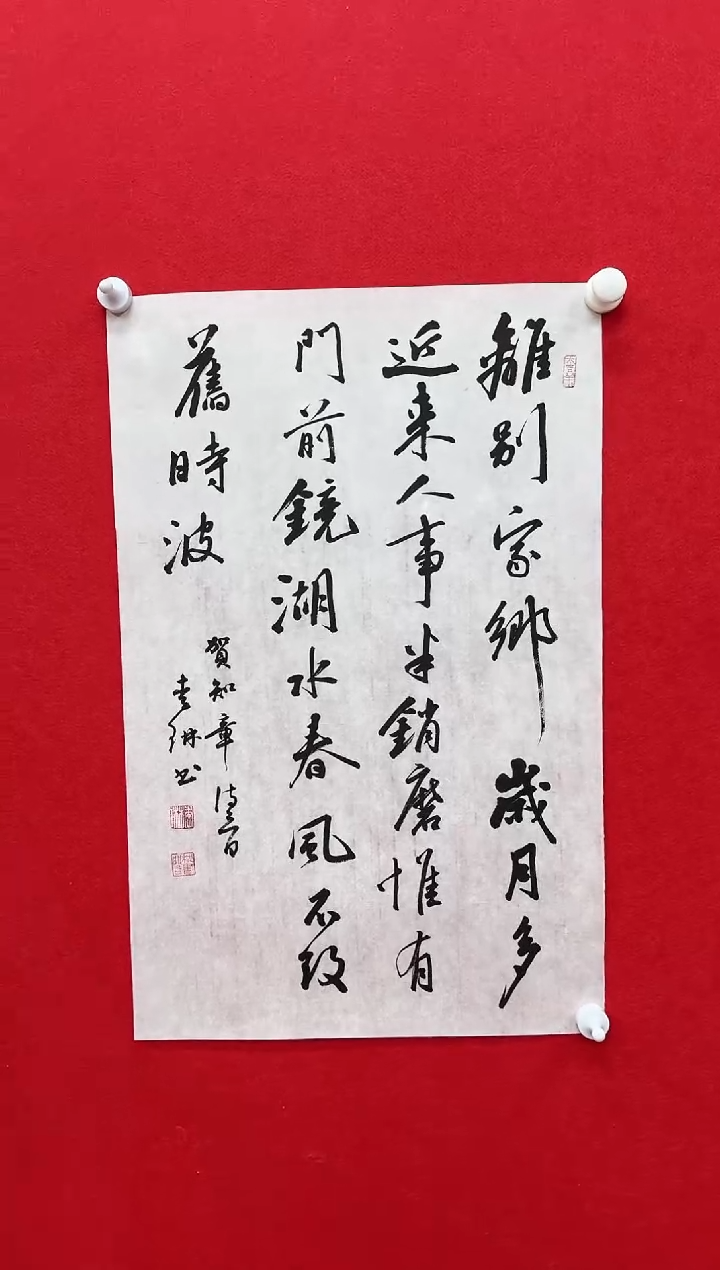 離别家鄉歲月多
近来人事半銷磨惟有
門前鏡湖水春風不改
舊時波
賀知章詩一首
书